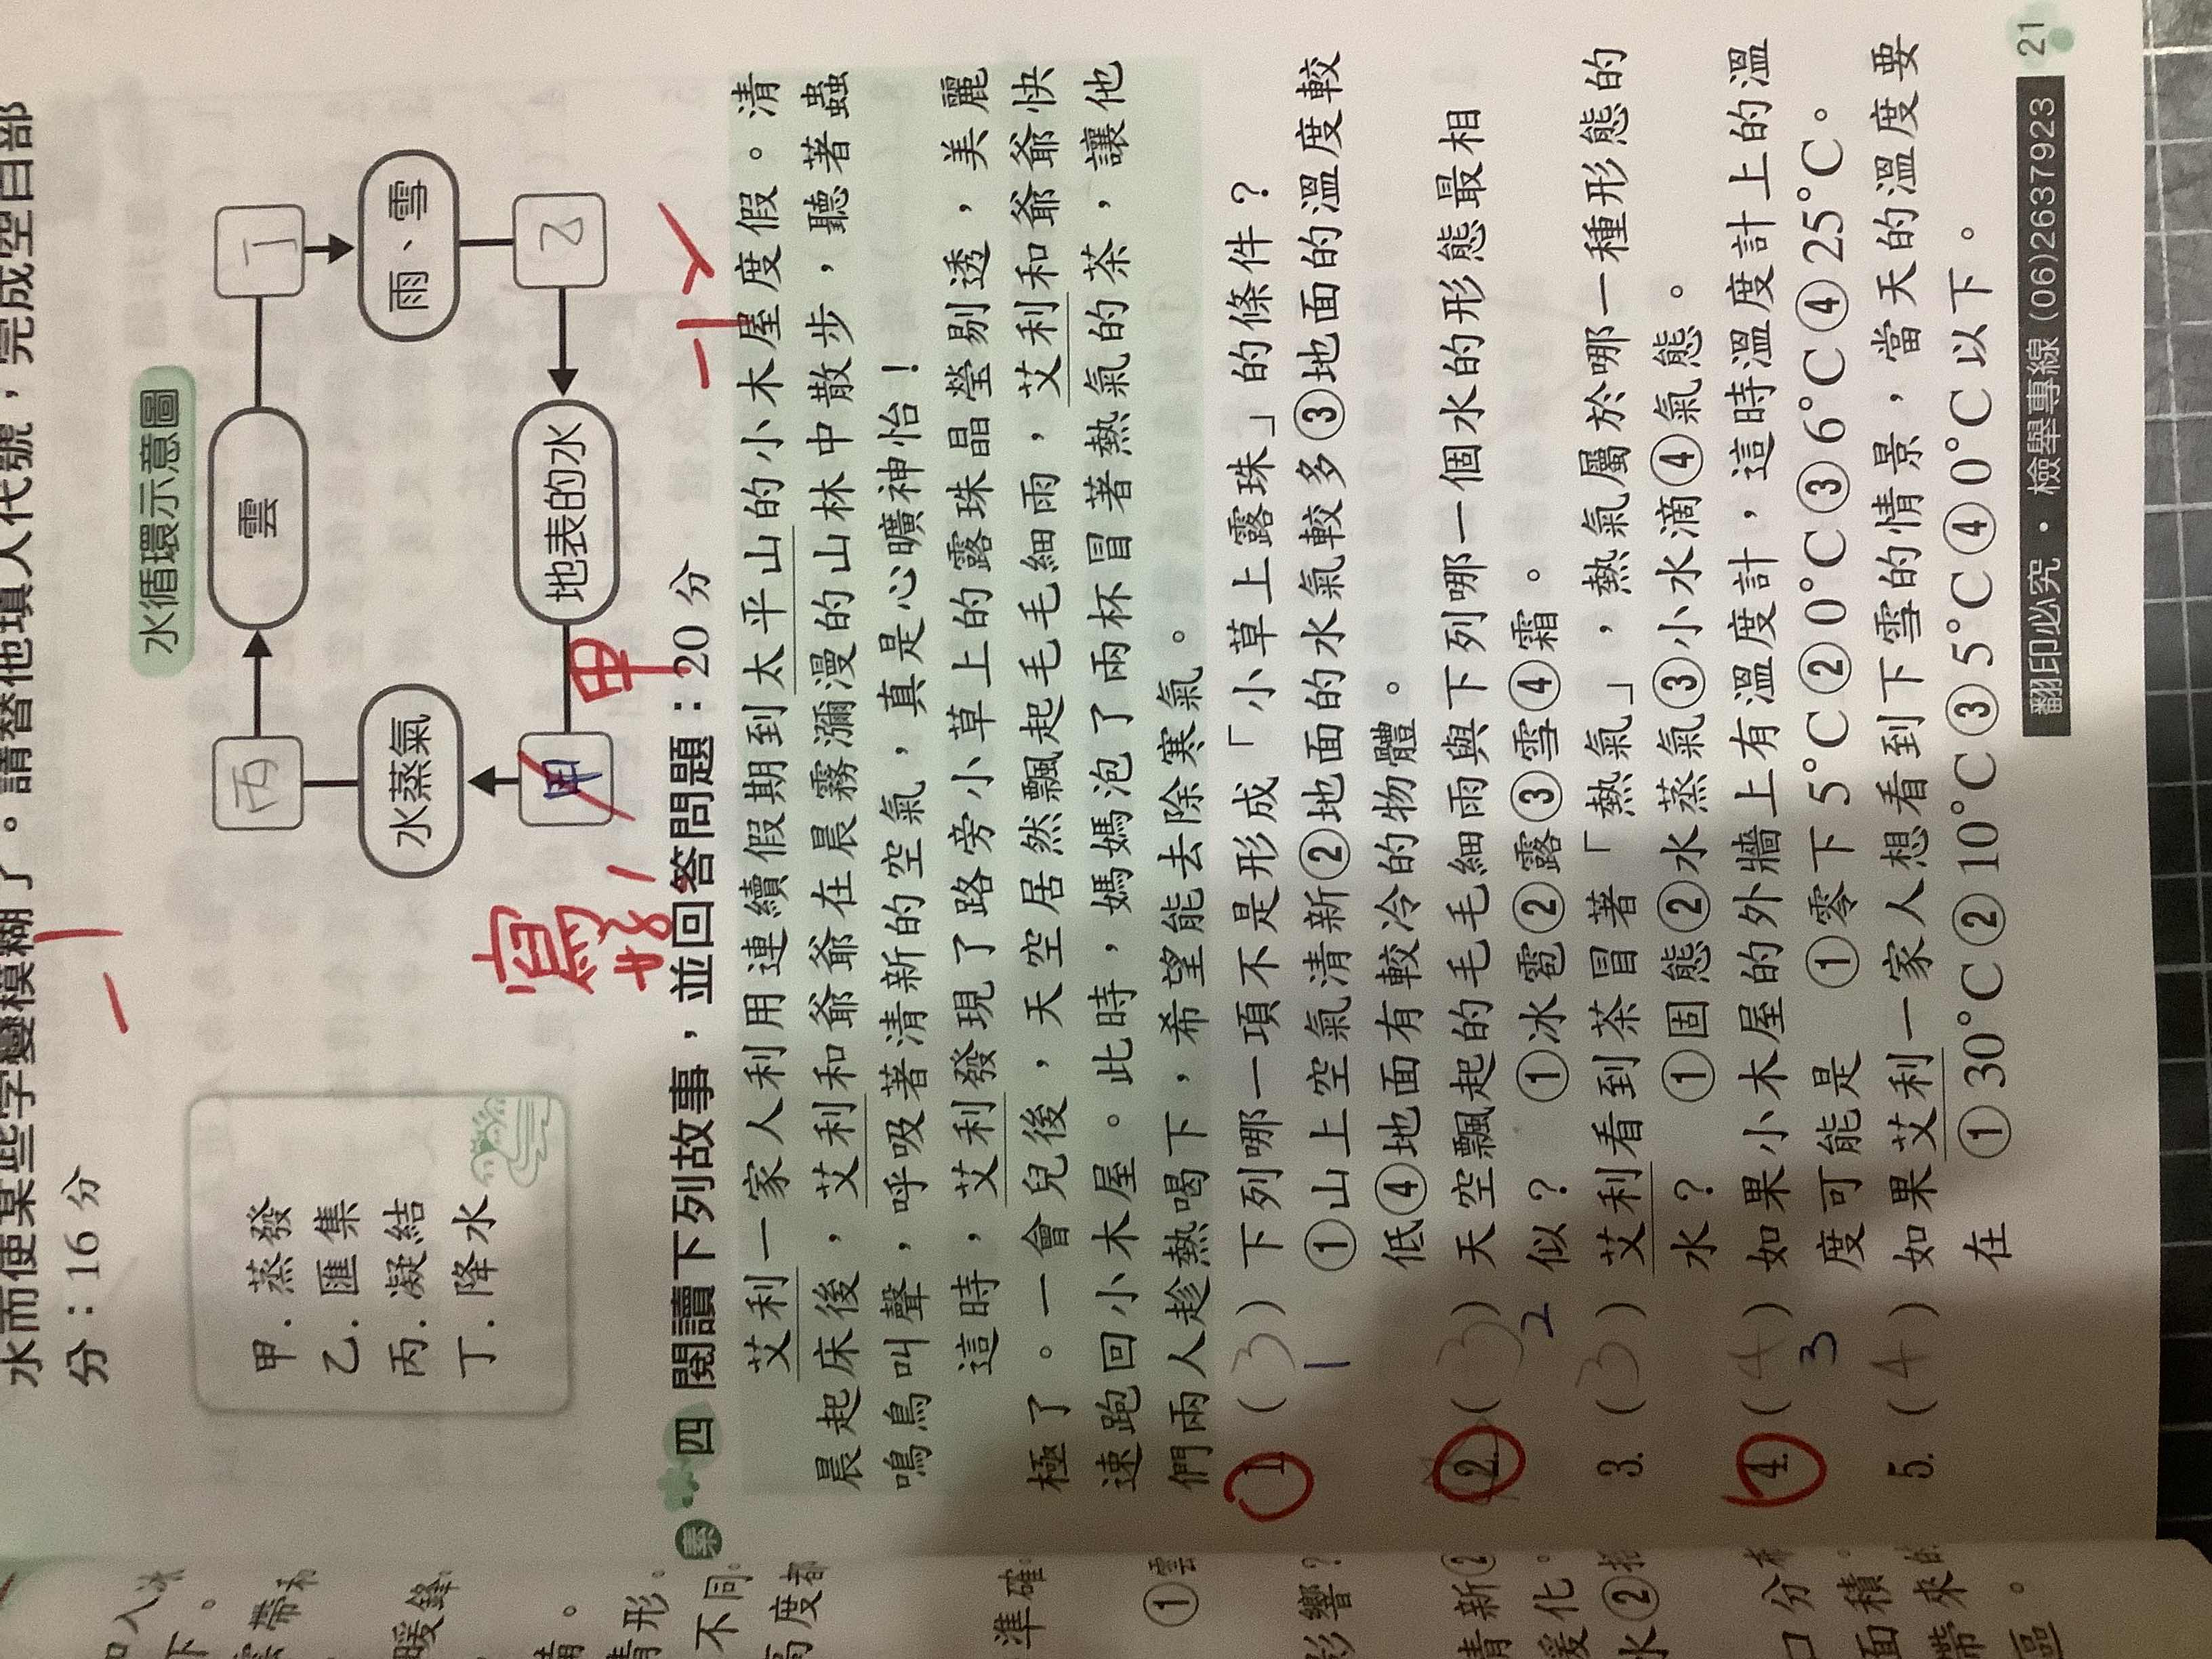 水而使某些字變模糊了。請替他填入代號，完成空白部
分：16分
水循環示意圖
甲．蒸發
乙．匯集
丙．凝結
丁．降水
丙
雲
丁
水蒸氣
雨、雪
甲
地表的水
乙
寫好
四 閱讀下列故事，並回答問題：20分
艾利一家人利用連續假期到太平山的小木屋度假。清
晨起床後，艾利和爺爺在晨霧瀰漫的山林中散步，聽著蟲
鳴鳥叫聲，呼吸著清新的空氣，真是心曠神怡！
這時，艾利發現了路旁小草上的露珠晶瑩剔透，美麗
極了。一會兒後，天空居然飄起毛毛細雨，艾利和爺爺快
速跑回小木屋。此時，媽媽泡了兩杯冒著熱氣的茶，讓他
們兩人趁熱喝下，希望能去除寒氣。
1.（3）下列哪一項不是形成「小草上露珠」的條件？
1 ①山上空氣清新②地面的水氣較多③地面的溫度較
低④地面有較冷的物體。
2.（3）天空飄起的毛毛細雨與下列哪一個水的形態最相
2 似？ ①冰雹②露③雪④霜。
3.（3）艾利看到茶冒著「熱氣」，熱氣屬於哪一種形態的
水？ ①固態②水蒸氣③小水滴④氣態。
4.（4）如果小木屋的外牆上有溫度計，這時溫度計上的溫
3 度可能是 ①零下5°C②0°C③6°C④25°C。
5.（4）如果艾利一家人想看到下雪的情景，當天的溫度要
在 ①30°C②10°C③5°C④0°C以下。
翻印必究・檢舉專線(06)2637923 21